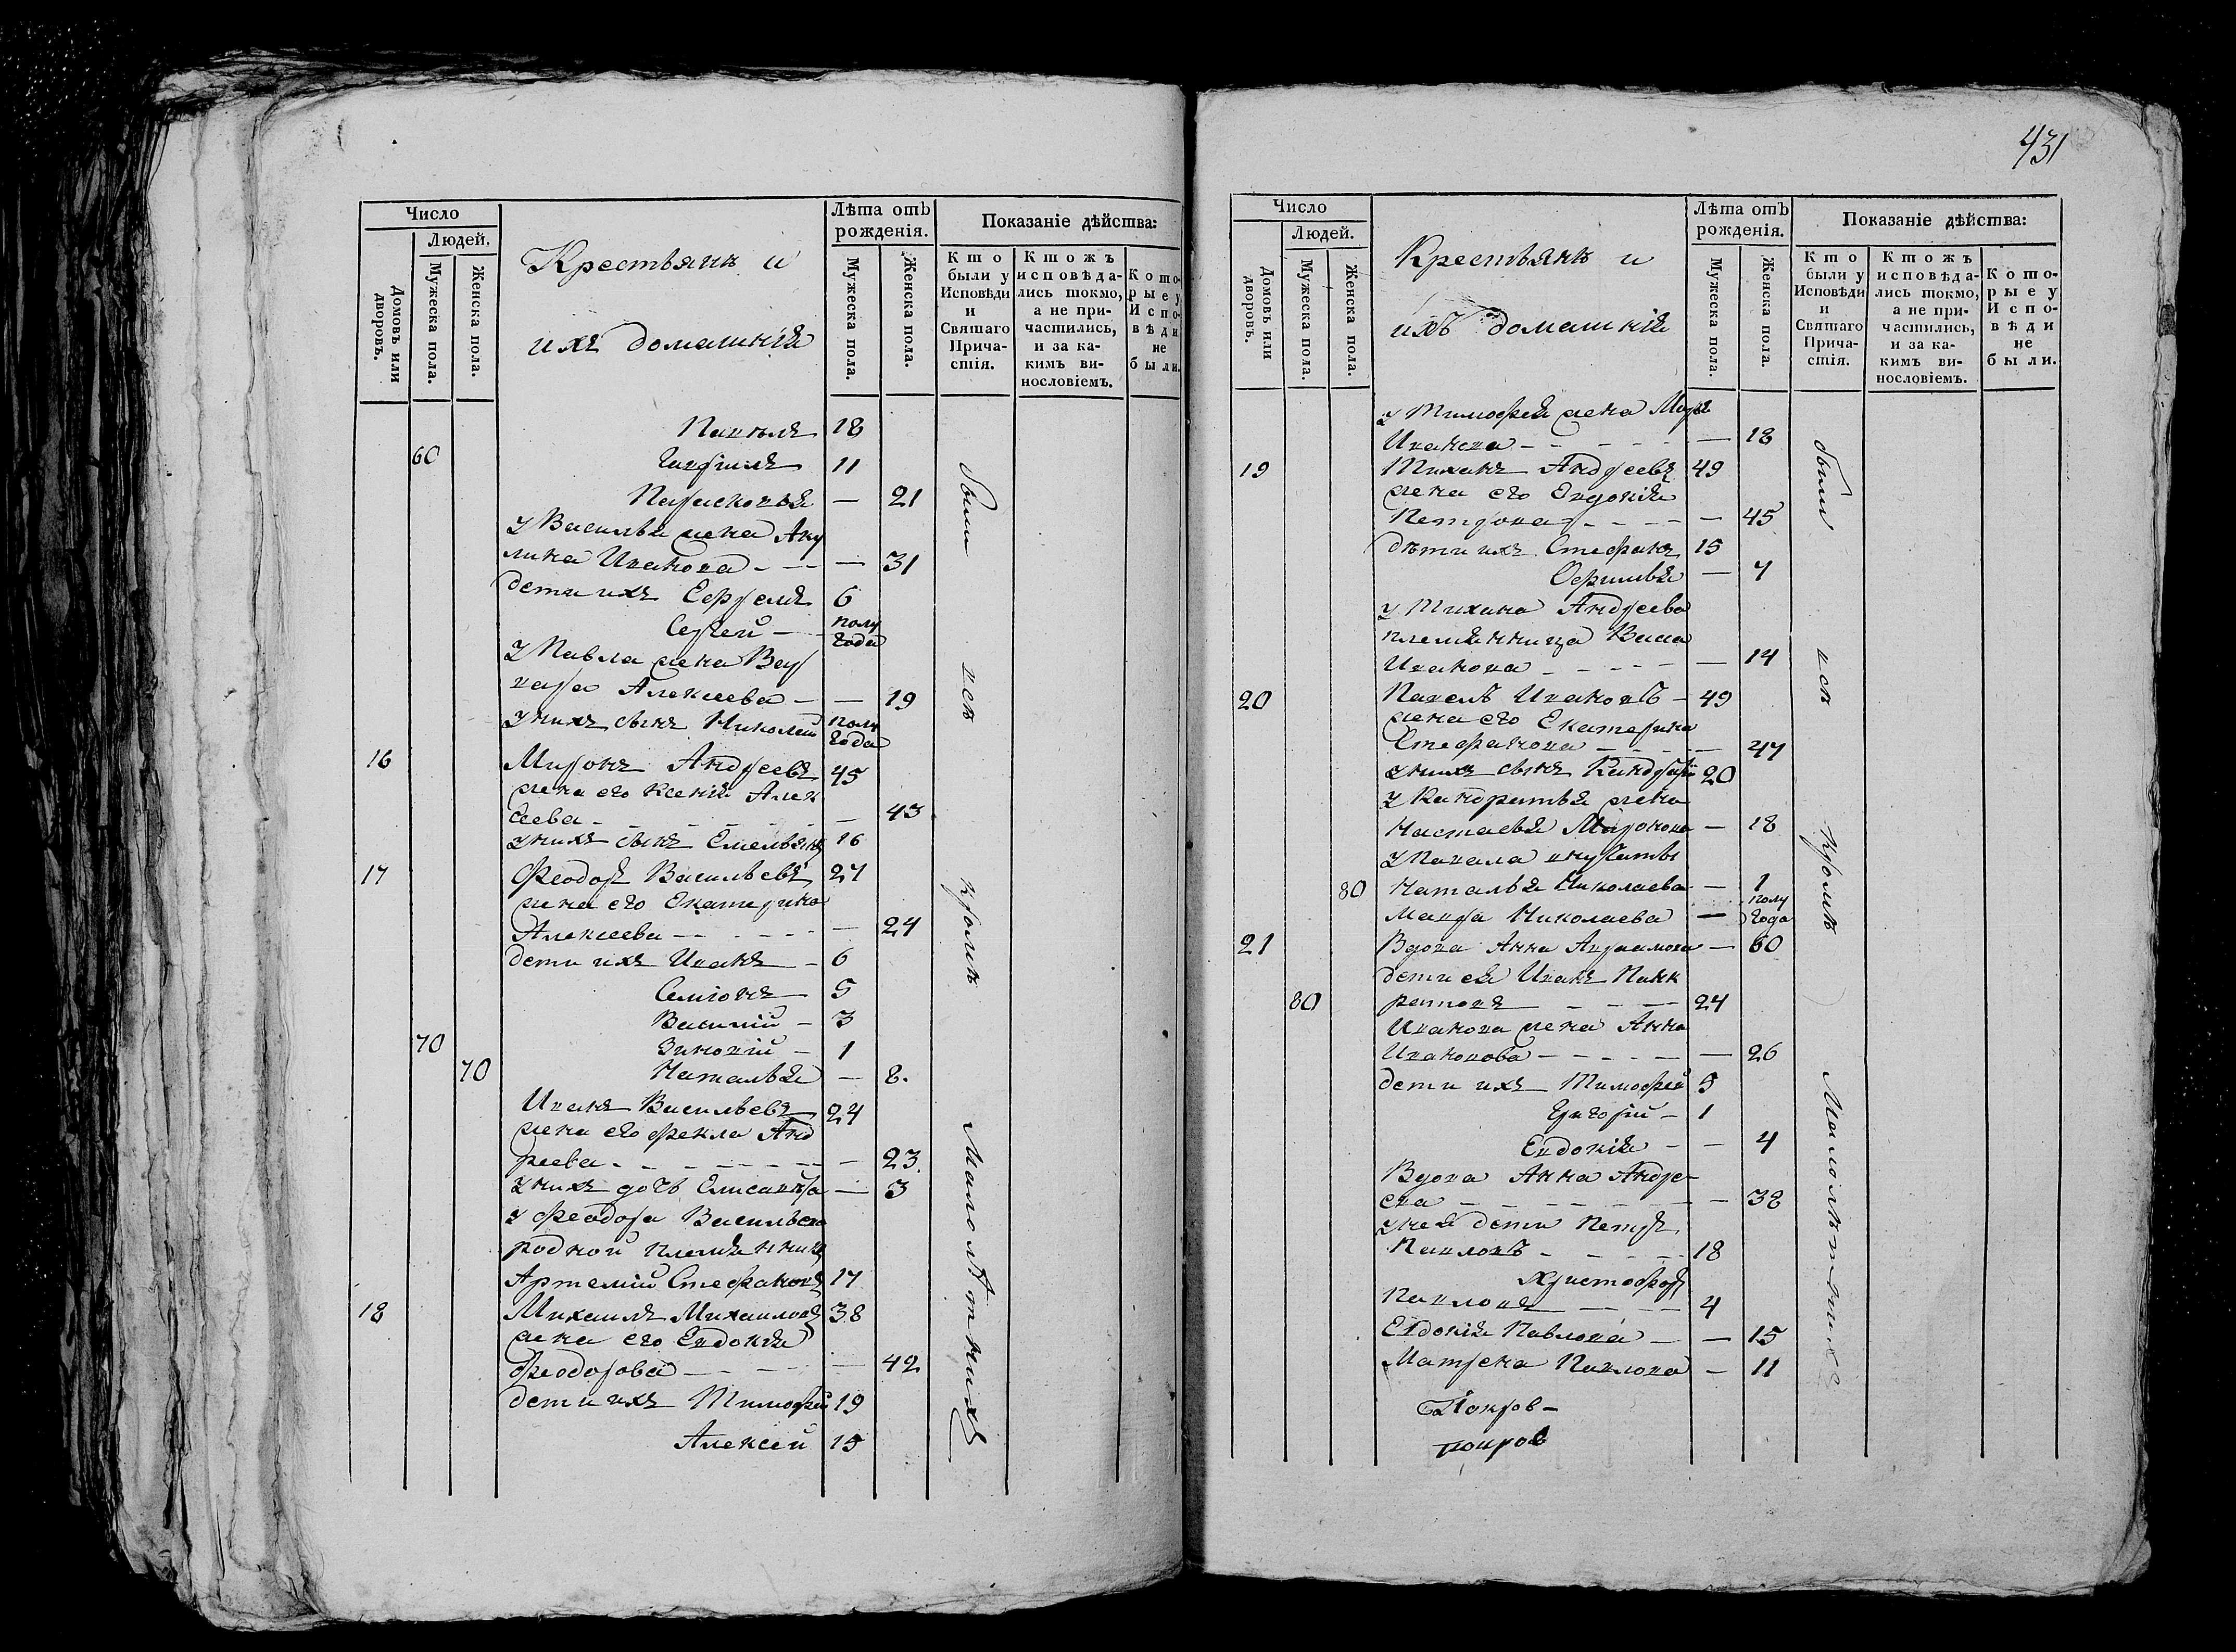 Число
Людей.
Домовъ или дворовъ.
Мужеска пола.
Женска пола.
Крестьянъ и
ихъ домашнія
Лѣта отъ рожденія.
Мужеска пола.
Женска пола.
Показаніе дѣйства:
Кто были у Исповѣди и Святаго Причастія.
Ктожъ исповѣдались токмо, а не причастились, и за какимъ винословіемъ.
Которые у Исповѣди не были.
Павелъ 18
60 Гавріилъ 11
Парасковья — 21
у Василья жена Аку
лина Иванова — — 31
дети ихъ Ефремъ 6
Сергей — полу года
у Павла жена Вар
вара Алексеева — — 19
у нихъ сынъ Николай полу года
16 Миронъ Андреевъ 45
жена его Ксенія Алек
сеева — — 43
у нихъ сынъ Емельянъ 16
17 Феодоръ Васильевъ 27
жена его Екатерина
Алексеева — — 24
дети ихъ Иванъ — 6
Симіонъ 5
Василій — 3
70 Зиновій — 1
70 Наталья — 8.
Иванъ Васильевъ 24
жена его Фекла Анд
реева — — 23.
у нихъ дочь Елисавета — 3
у Феодора Васильева
родной племянникъ
Артемій Стефановъ 17
18 Михаилъ Михаиловъ 38
жена его Евдокія
Феодорова — — 42
дети ихъ Тимофей 19
Алексей 15
были всѣ кромѣ Малолѣтнихъ
431
Число
Людей.
Домовъ или дворовъ.
Мужеска пола.
Женска пола.
Крестьянъ и
ихъ домашнія
Лѣта отъ рожденія.
Мужеска пола.
Женска пола.
Показаніе дѣйства:
Кто были у Исповѣди и Святаго Причастія.
Ктожъ исповѣдались токмо, а не причастились, и за какимъ винословіемъ.
Которые у Исповѣди не были.
у Тимофея жена
Иванова — — 18
19 Тиханъ Андреевъ 49
жена его Евдокія
Петрова — — 45
дѣти ихъ Стефанъ 15
Офимья — 7
у Тихана Андреева
племянница Васса
Иванова — — 14
20 Павелъ Ивановъ — 49
жена его Екатерина
Стефанова — — 47
у нихъ сынъ Кандратій 20
у Кандратья жена
Настасья Миронова — 18
у Павала внучаты
80 Наталья Николаева — 1
Мавра Николаева — полу года
21 Вдова Анна Авраамова — 60
дети ея Иванъ Панк
80 ратовъ — 24
Иванова жена Анна
Иванова — — 26
дети ихъ Тимофей 5
Григорій — 1
Евдокія — — 4
Вдова Анна Андре-
ева — — 38
у нея дети Петръ
Павловъ — 18
Христофоръ
Павловъ — 4
Евдокія Павлова — — 15
Матрена Павлова — 11
Покров-
покров
были всѣ кромѣ Малолѣтнихъ